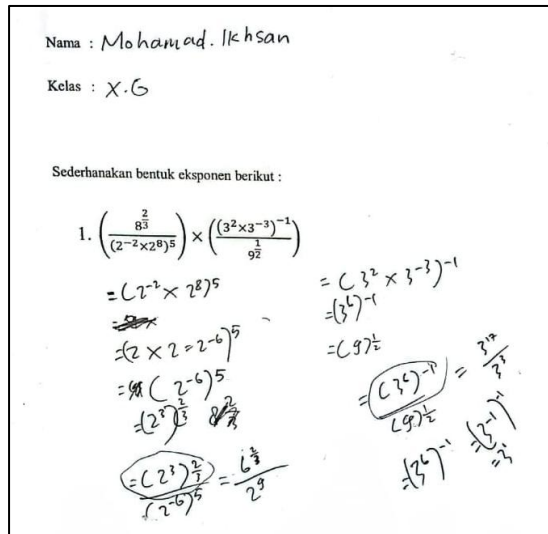 Nama : Mohamad. Ikhsan
Kelas : X.G
Sederhanakan bentuk eksponen berikut :
1. (8^(2/3) / (2^-2 × 2^8)^5) × ((3^2 × 3^-3)^-1 / 9^(1/2))
= (2^-2 × 2^8)^5
= (2 × 2 = 2^-6)^5
= (2^-6)^5
= (2^3)^(2/3)
= (2^3)^(2/3) / (2^-6)^5 = 6^(2/3) / 2^9
= (3^2 × 3^-3)^-1
= (3^6)^-1
= (9)^(1/2)
= (3^6)^-1 / (9)^(1/2) =
= (3^6)^-1
= (3^-1)^-1